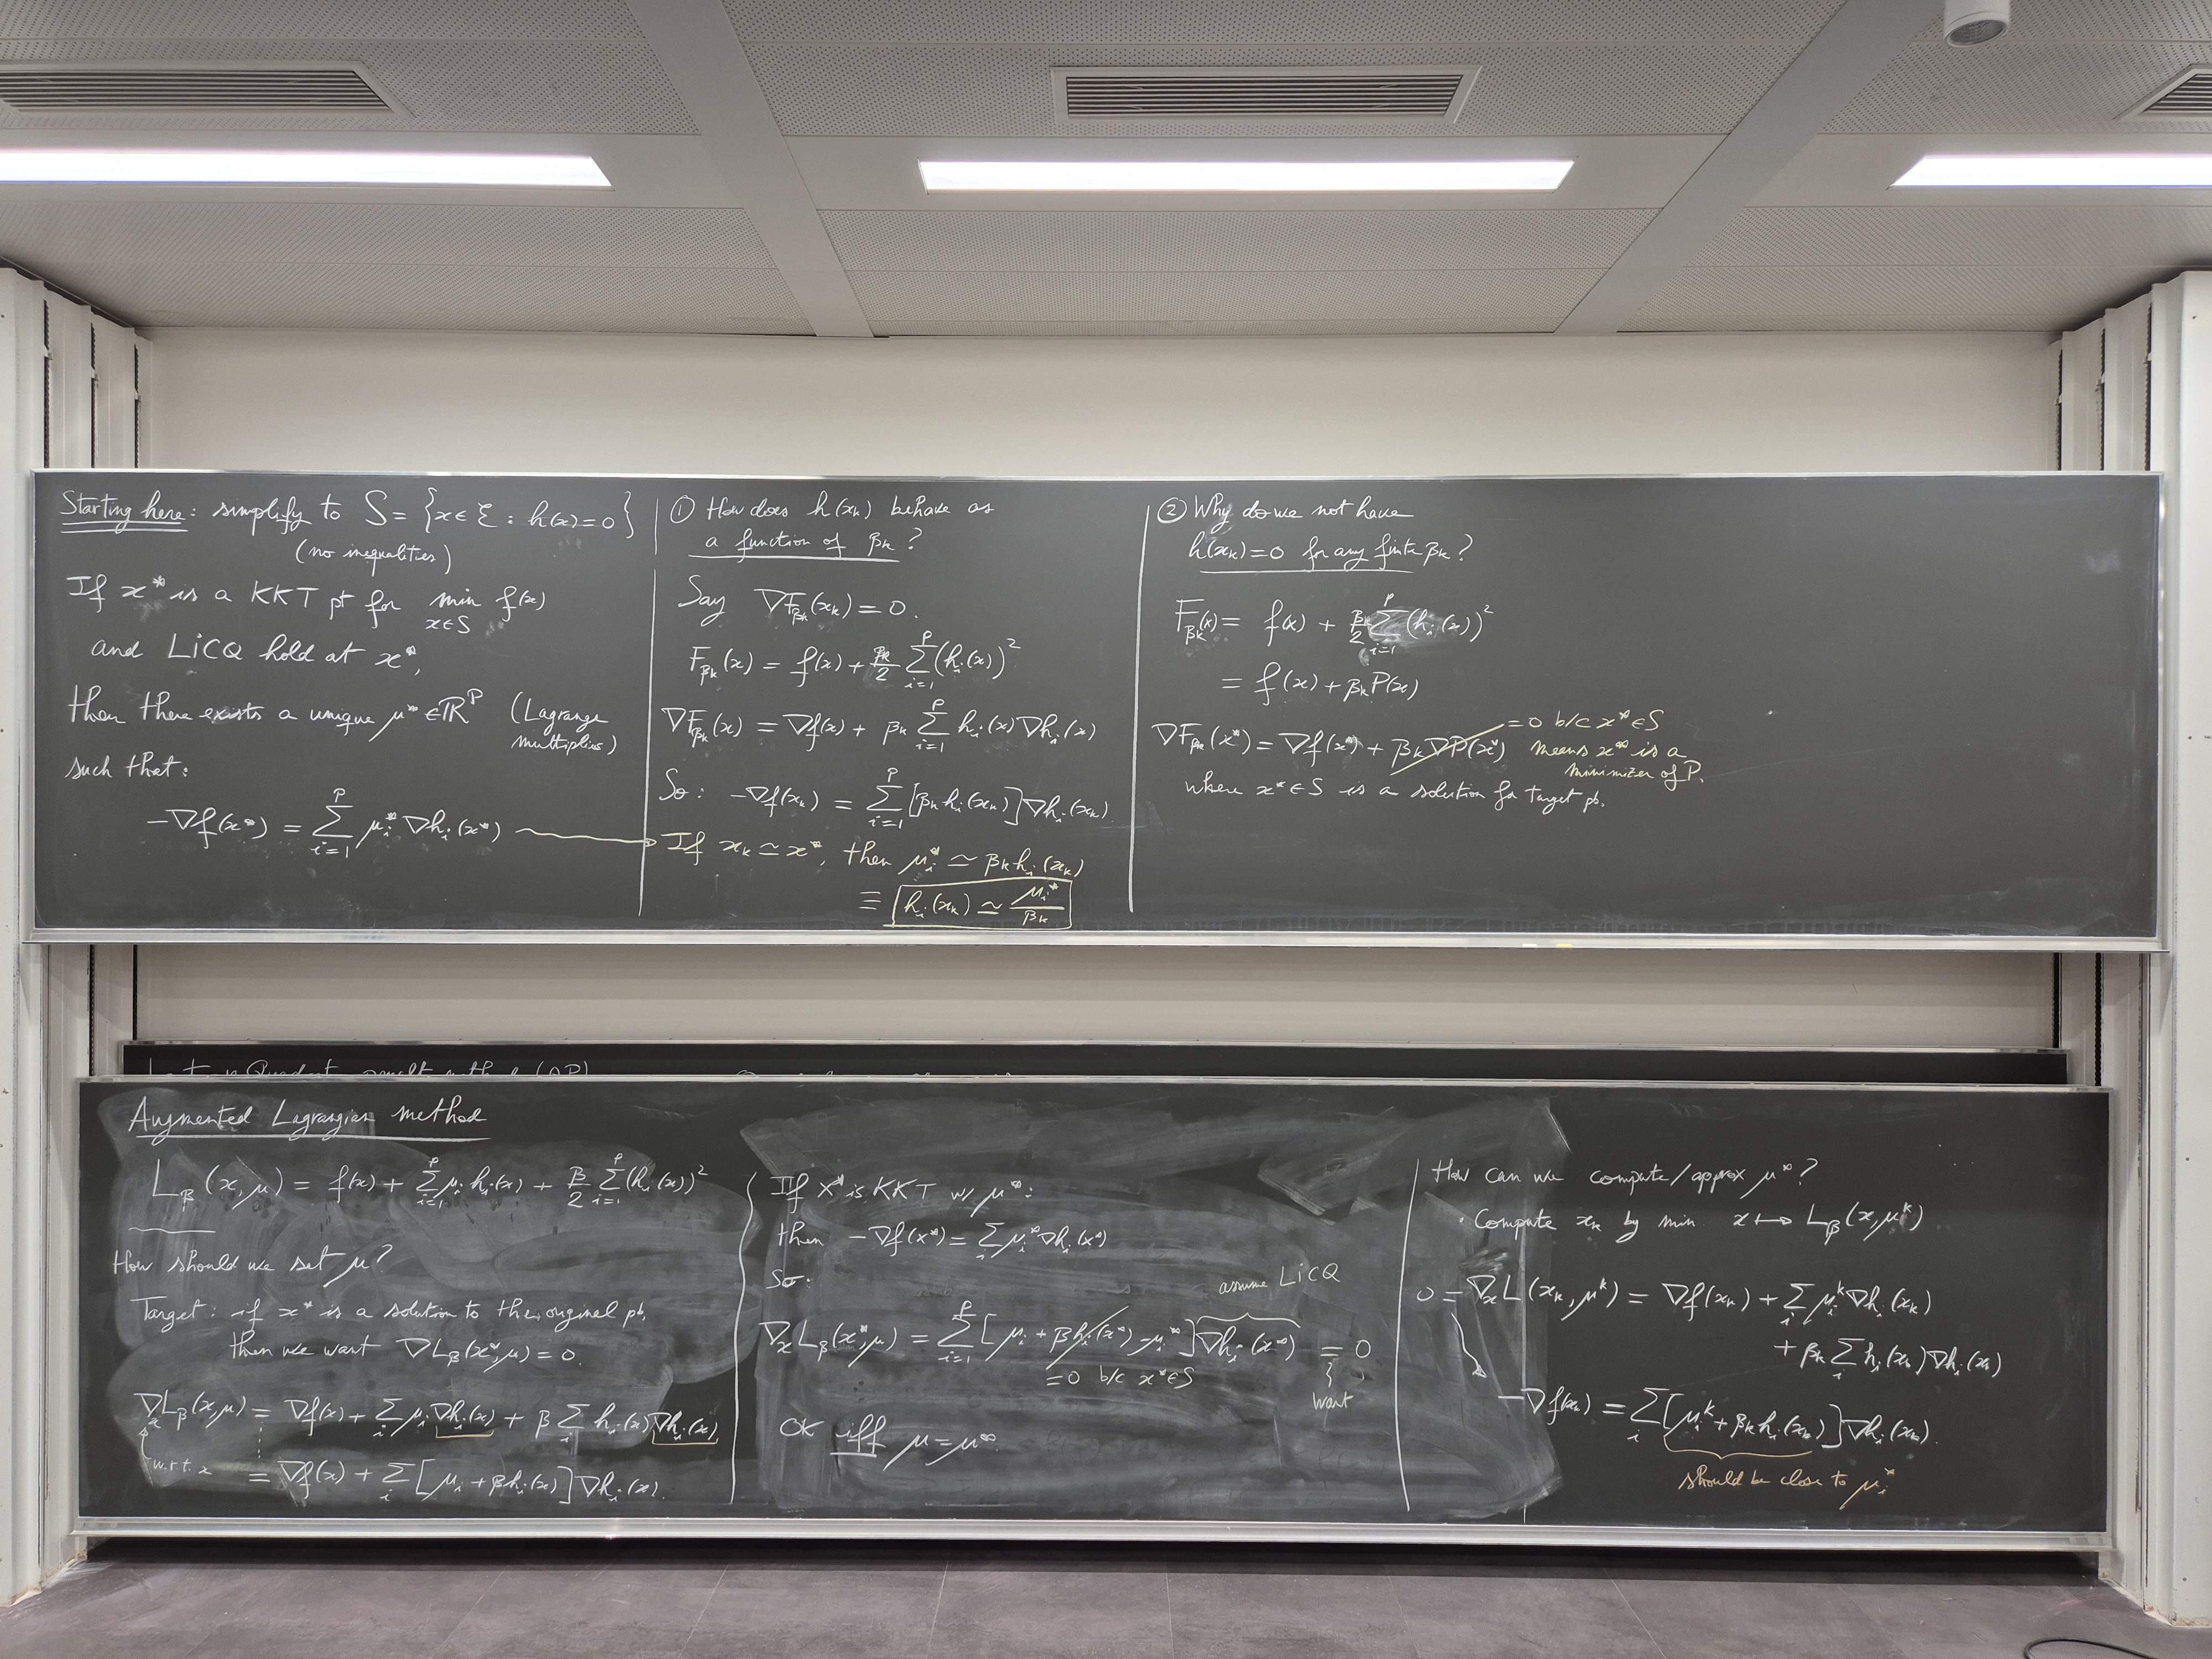 Starting here: simplify to S = {x ∈ ℰ : h(x) = 0}
(no inequalities)
If x* is a KKT pt for min_{x∈S} f(x)
and LICQ hold at x*,
then there exists a unique μ* ∈ ℝ^p (Lagrange
multiplies)
such that:
-∇f(x*) = ∑_{i=1}^p μ_i* ∇h_i(x*)
① How does h(x_k) behave as
a function of β_k?
Say ∇F_{β_k}(x_k) = 0.
F_{β_k}(x) = f(x) + β_k/2 ∑_{i=1}^p (h_i(x))²
∇F_{β_k}(x) = ∇f(x) + β_k ∑_{i=1}^p h_i(x)∇h_i(x)
So: -∇f(x_k) = ∑_{i=1}^p [β_k h_i(x_k)]∇h_i(x_k)
If x_k ≃ x*, then μ_i* ≃ β_k h_i(x_k)
≡ h_i(x_k) ≃ μ_i*/β_k
② Why do we not have
h(x_k) = 0 for any finite β_k?
F_{β_k}(x) = f(x) + β_k/2 ∑_{i=1}^p (h_i(x))²
= f(x) + β_k P(x)
∇F_{β_k}(x*) = ∇f(x*) + β_k ∇P(x*) = 0 b/c x* ∈ S
means x* is a
minimizer of P.
where x* ∈ S is a solution for target pb.
Augmented Lagrangian method
L_β(x, μ) = f(x) + ∑_{i=1}^p μ_i h_i(x) + β/2 ∑_{i=1}^p (h_i(x))²
How should we set μ?
Target: if x* is a solution to the original pb,
then we want ∇L_β(x*, μ) = 0.
∇_x L_β(x, μ) = ∇f(x) + ∑_i μ_i ∇h_i(x) + β ∑_i h_i(x)∇h_i(x)
w.r.t. x = ∇f(x) + ∑_i [μ_i + β h_i(x)]∇h_i(x).
If x* is KKT w/ μ*:
then -∇f(x*) = ∑_i μ_i* ∇h_i(x*)
So:
assume LICQ
∇_x L_β(x*, μ) = ∑_{i=1}^p [μ_i + β h_i(x*) - μ_i*]∇h_i(x*) = 0
= 0 b/c x* ∈ S
want
OK iff μ = μ*
How can we compute/approx μ*?
· Compute x_k by min x ↦ L_β(x, μ^k)
0 = ∇_x L(x_k, μ^k) = ∇f(x_k) + ∑_i μ_i^k ∇h_i(x_k)
+ β_k ∑_i h_i(x_k)∇h_i(x_k)
-∇f(x_k) = ∑_i [μ_i^k + β_k h_i(x_k)]∇h_i(x_k).
should be close to μ_i*